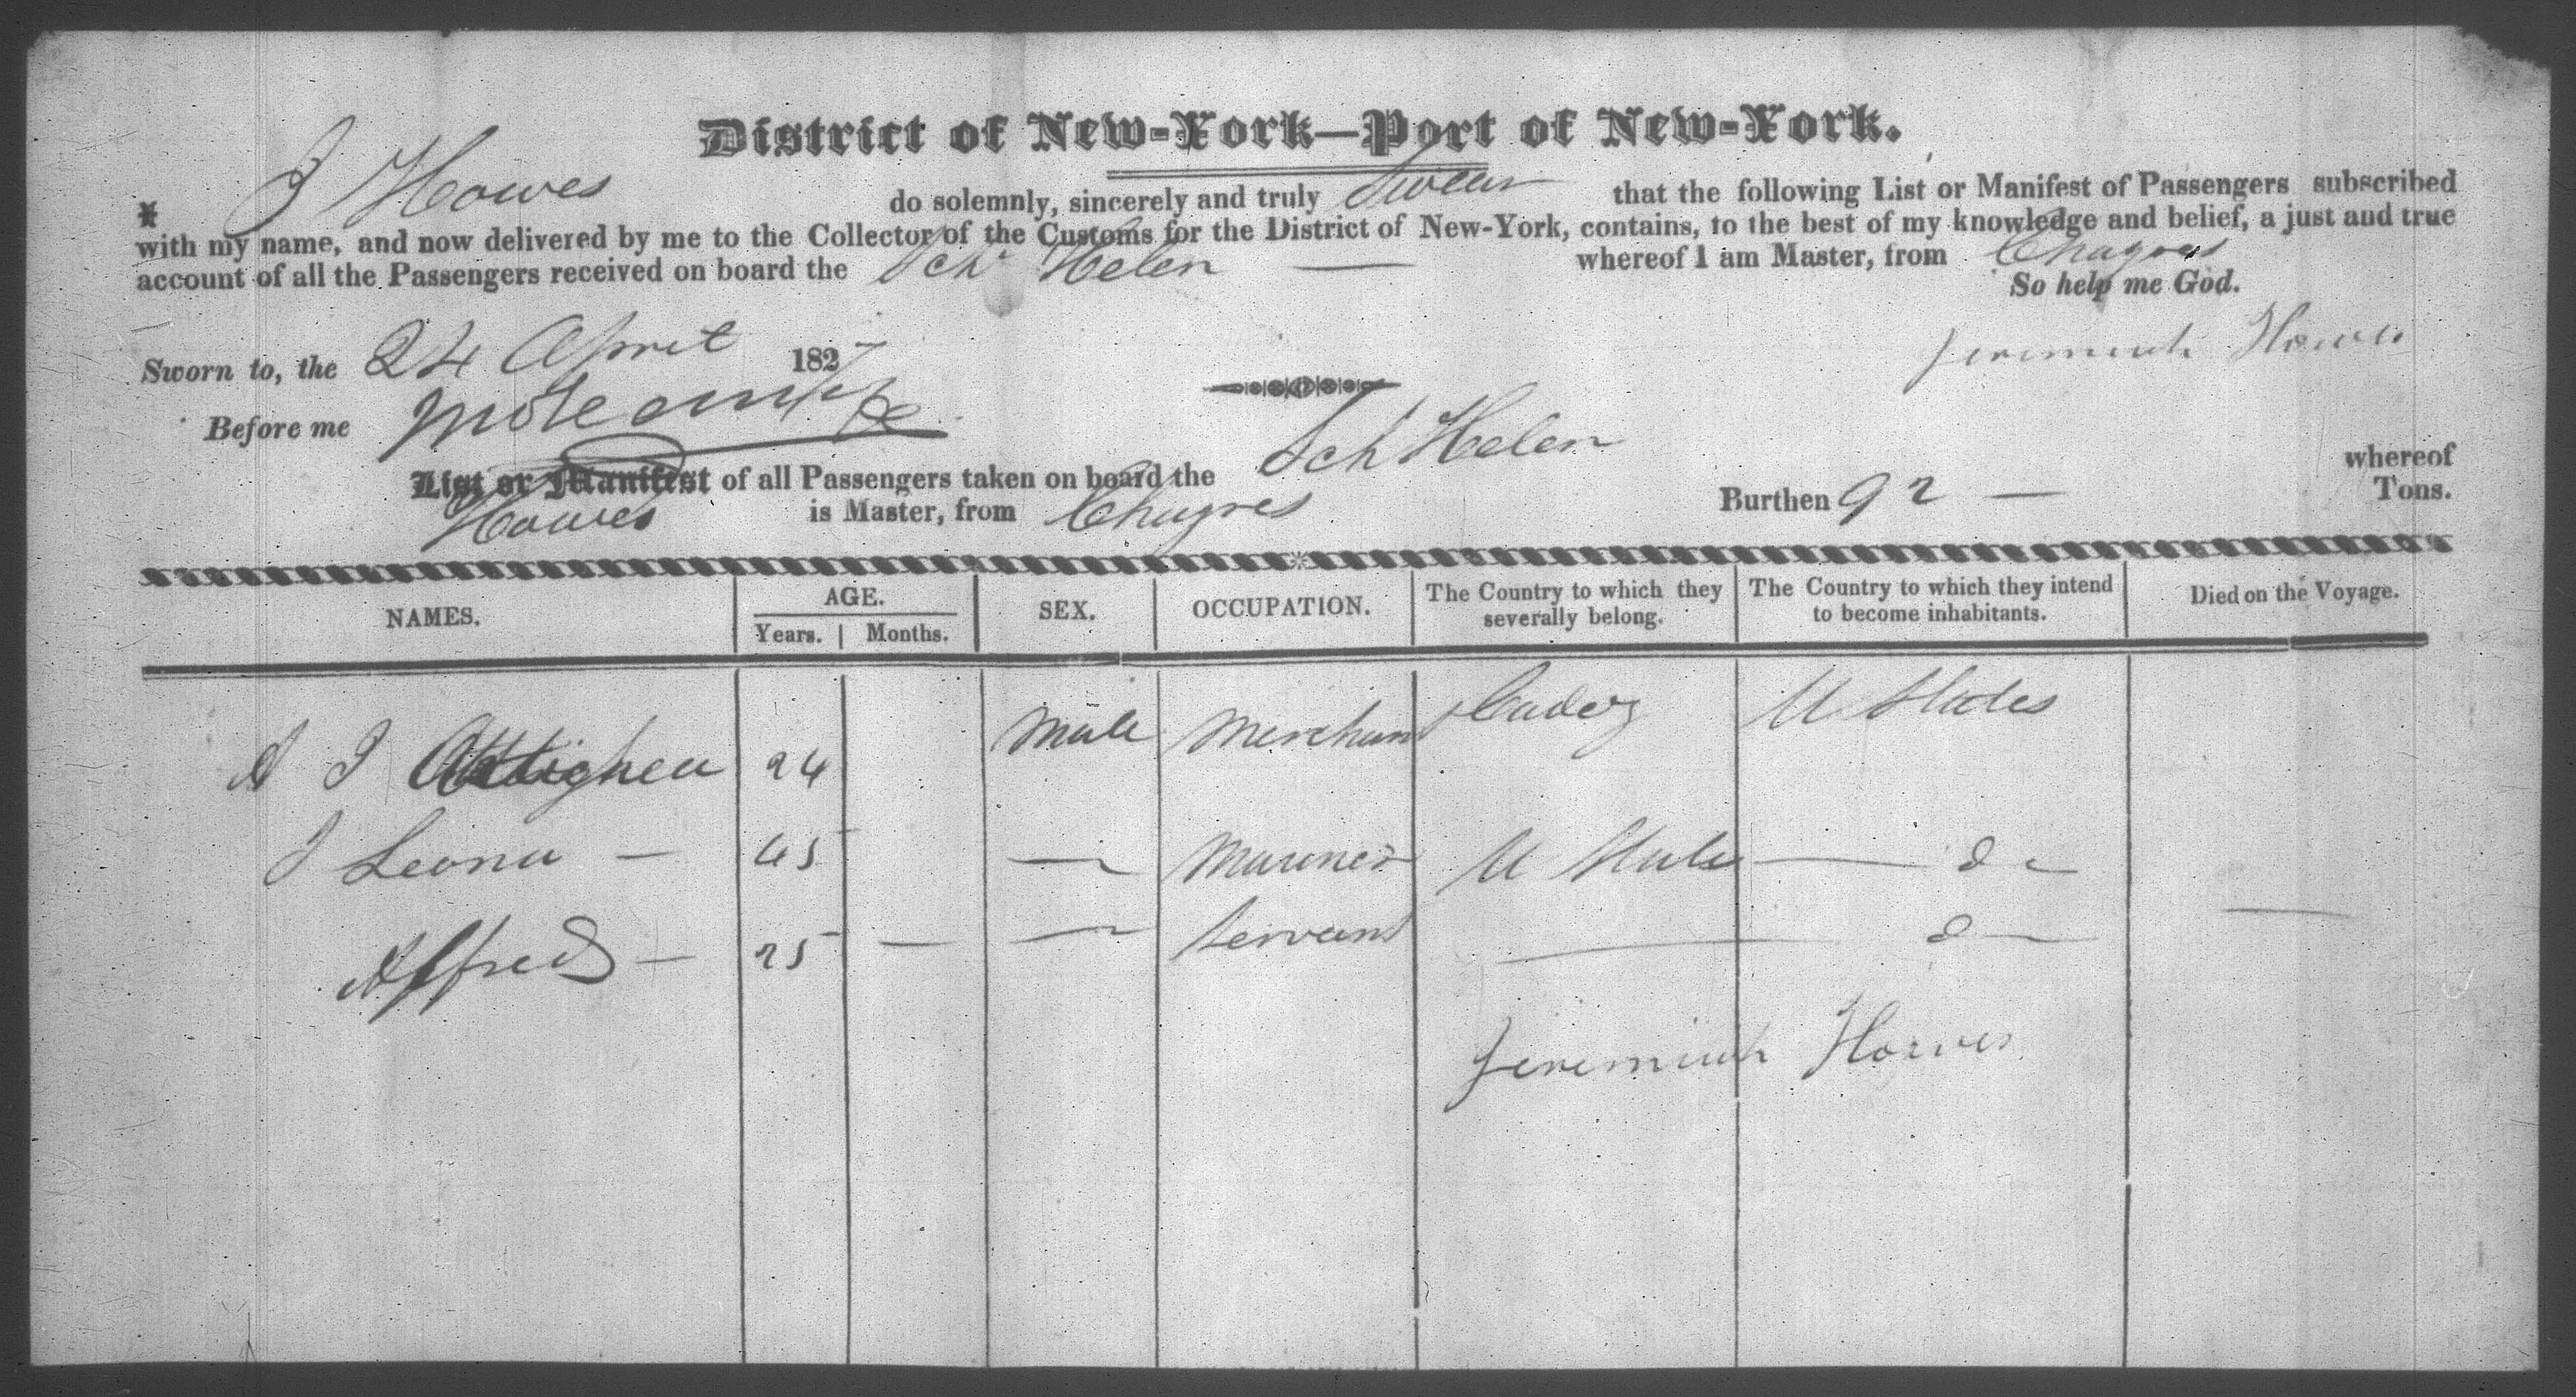 District of New-York—Port of New-York.
I J Howes do solemnly, sincerely and truly Swear that the following List or Manifest of Passengers subscribed
with my name, and now delivered by me to the Collector of the Customs for the District of New-York, contains, to the best of my knowledge and belief, a just and true
account of all the Passengers received on board the Schr Helen — whereof I am Master, from Chagres
So help me God.
Sworn to, the 24 April 1827 Jeremiah Howes
Before me
List or Manifest of all Passengers taken on board the Sch Helen whereof
Howes is Master, from Chagres Burthen 92 — Tons.
NAMES. AGE. SEX. OCCUPATION. The Country to which they severally belong. The Country to which they intend to become inhabitants. Died on the Voyage.
Years. Months.
A J 24 Male Merchant Cadiz U States
J Leona — 45 — Mariner U States — do
Alfred — 25 — — Servant — do — —
Jeremiah Howes